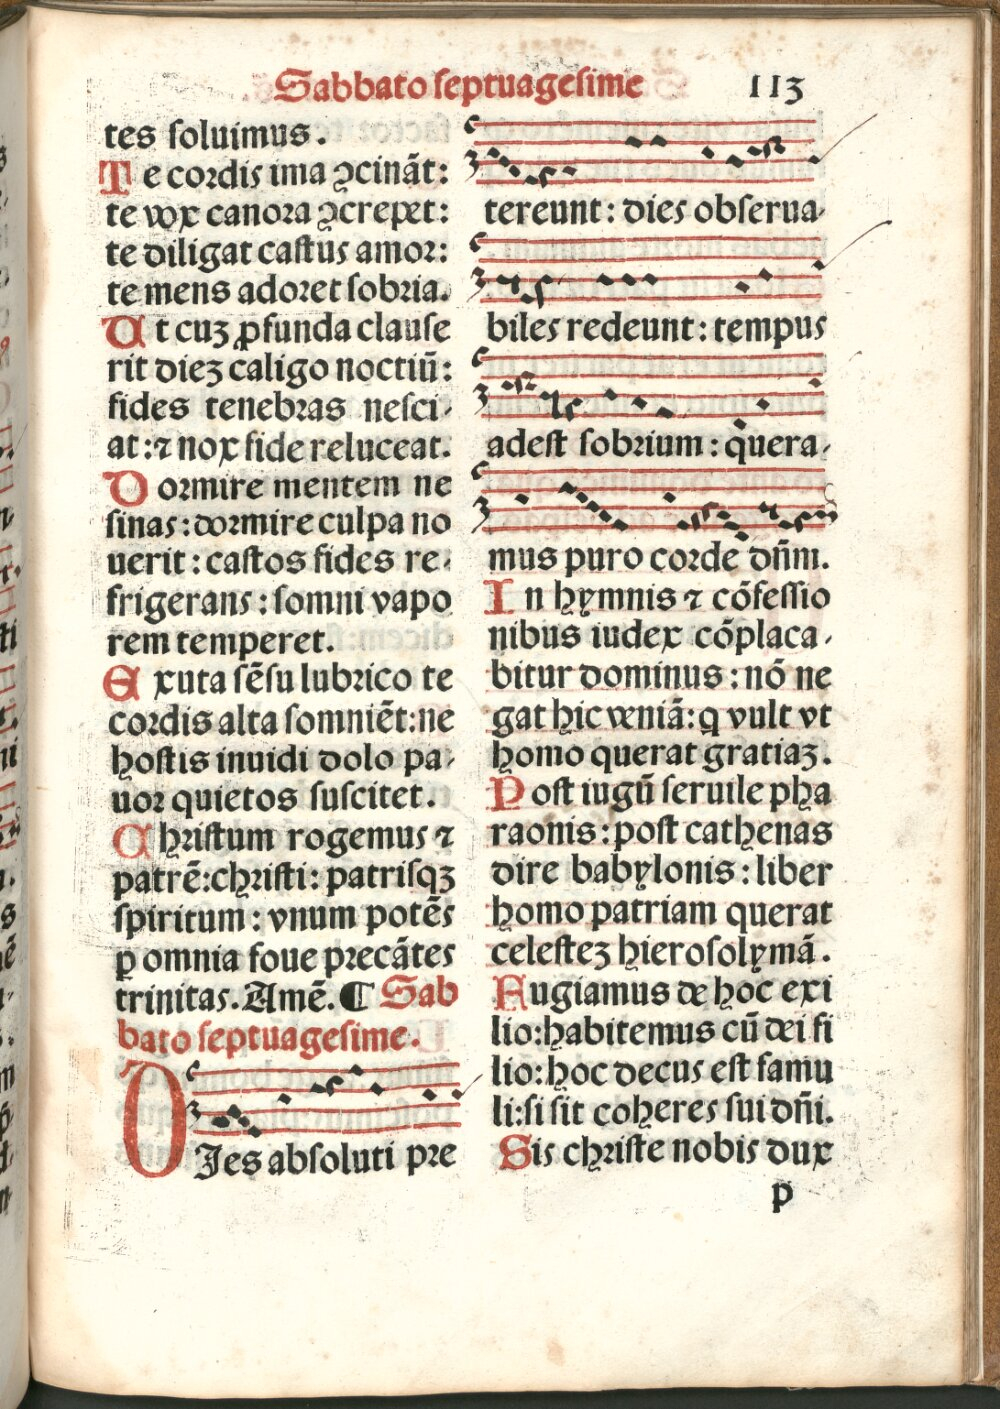 Sabbato septuagesime 113
tes soluimus.
Te cordis ima ↄcinãt:
te vox canora ↄcrepet:
te diligat castus amor:
te mens adoret sobria.
Ut cuʒ ꝓfunda clause
rit dieʒ caligo noctiũ:
fides tenebras nesci-
at: ⁊ nox fide reluceat.
Dormire mentem ne
sinas: dormire culpa no
uerit: castos fides re-
frigerans: somni vapo
rem temperet.
Exuta sẽsu lubrico te
cordis alta somniẽt: ne
hostis inuidi dolo pa-
uor quietos suscitet.
Christum rogemus ⁊
patrẽ: christi: patrisqʒ
spiritum: vnum potẽs
ꝑ omnia foue precãtes
trinitas. Amẽ. ¶ Sab
bato septuagesime.
DJes absoluti pre
tereunt: dies obserua-
biles redeunt: tempus
adest sobrium: quera-
mus puro corde dñm.
In hymnis ⁊ cõfessio
nibus iudex cõplaca-
bitur dominus: nõ ne
gat hic veniã: q vult vt
homo querat gratiaʒ.
Post iugũ seruile pha
raonis: post cathenas
dire babylonis: liber
homo patriam querat
celesteʒ hierosolymã.
Augiamus de hoc exi
lio: habitemus cũ dei fi
lio: hoc decus est famu
li: si sit coheres sui dñi.
Sis christe nobis dux
p